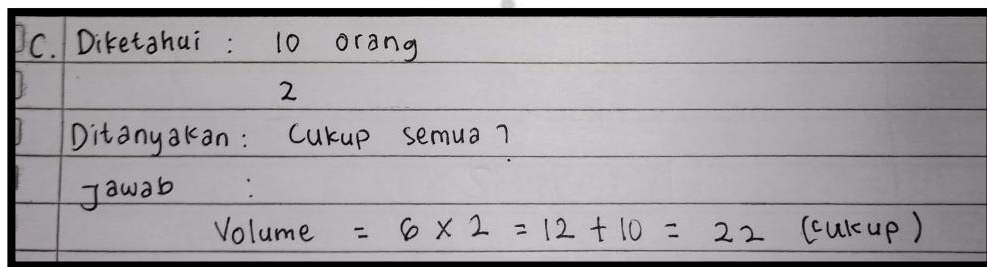 C. Diketahui : 10 orang
2
Ditanyakan : Cukup semua ?
Jawab :
Volume = 6 x 2 = 12 + 10 = 22 (cukup)